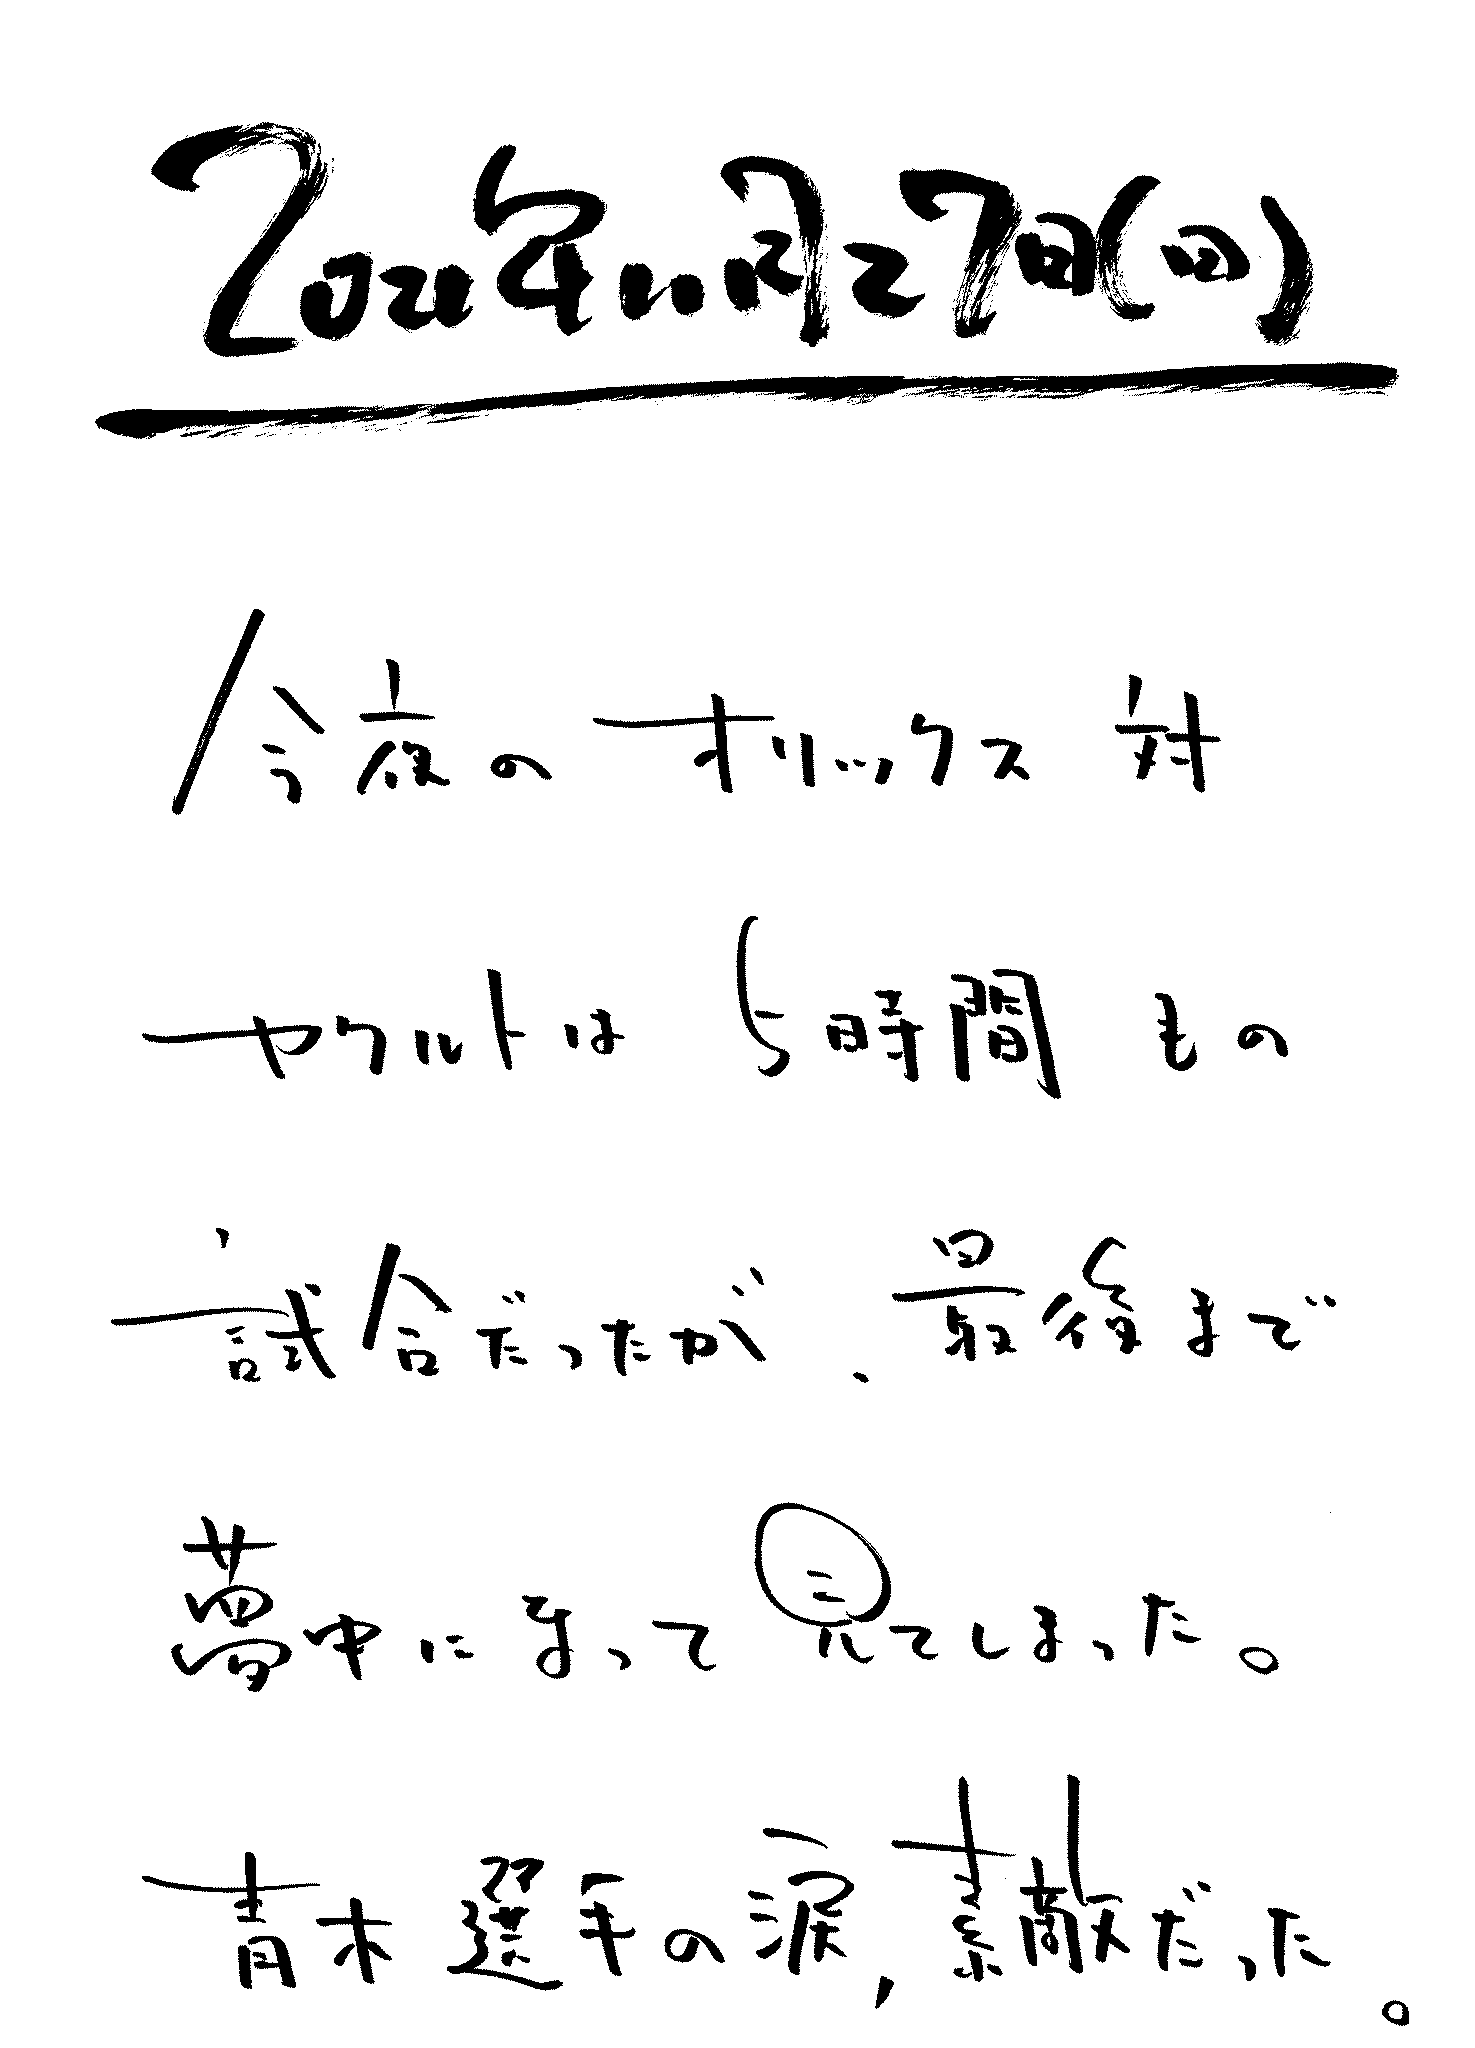 2021年11月27日(日)
今夜のオリックス対
ヤクルトは5時間もの
試合だったが、最後まで
夢中になって見てしまった。
青木選手の涙,素敵だった。